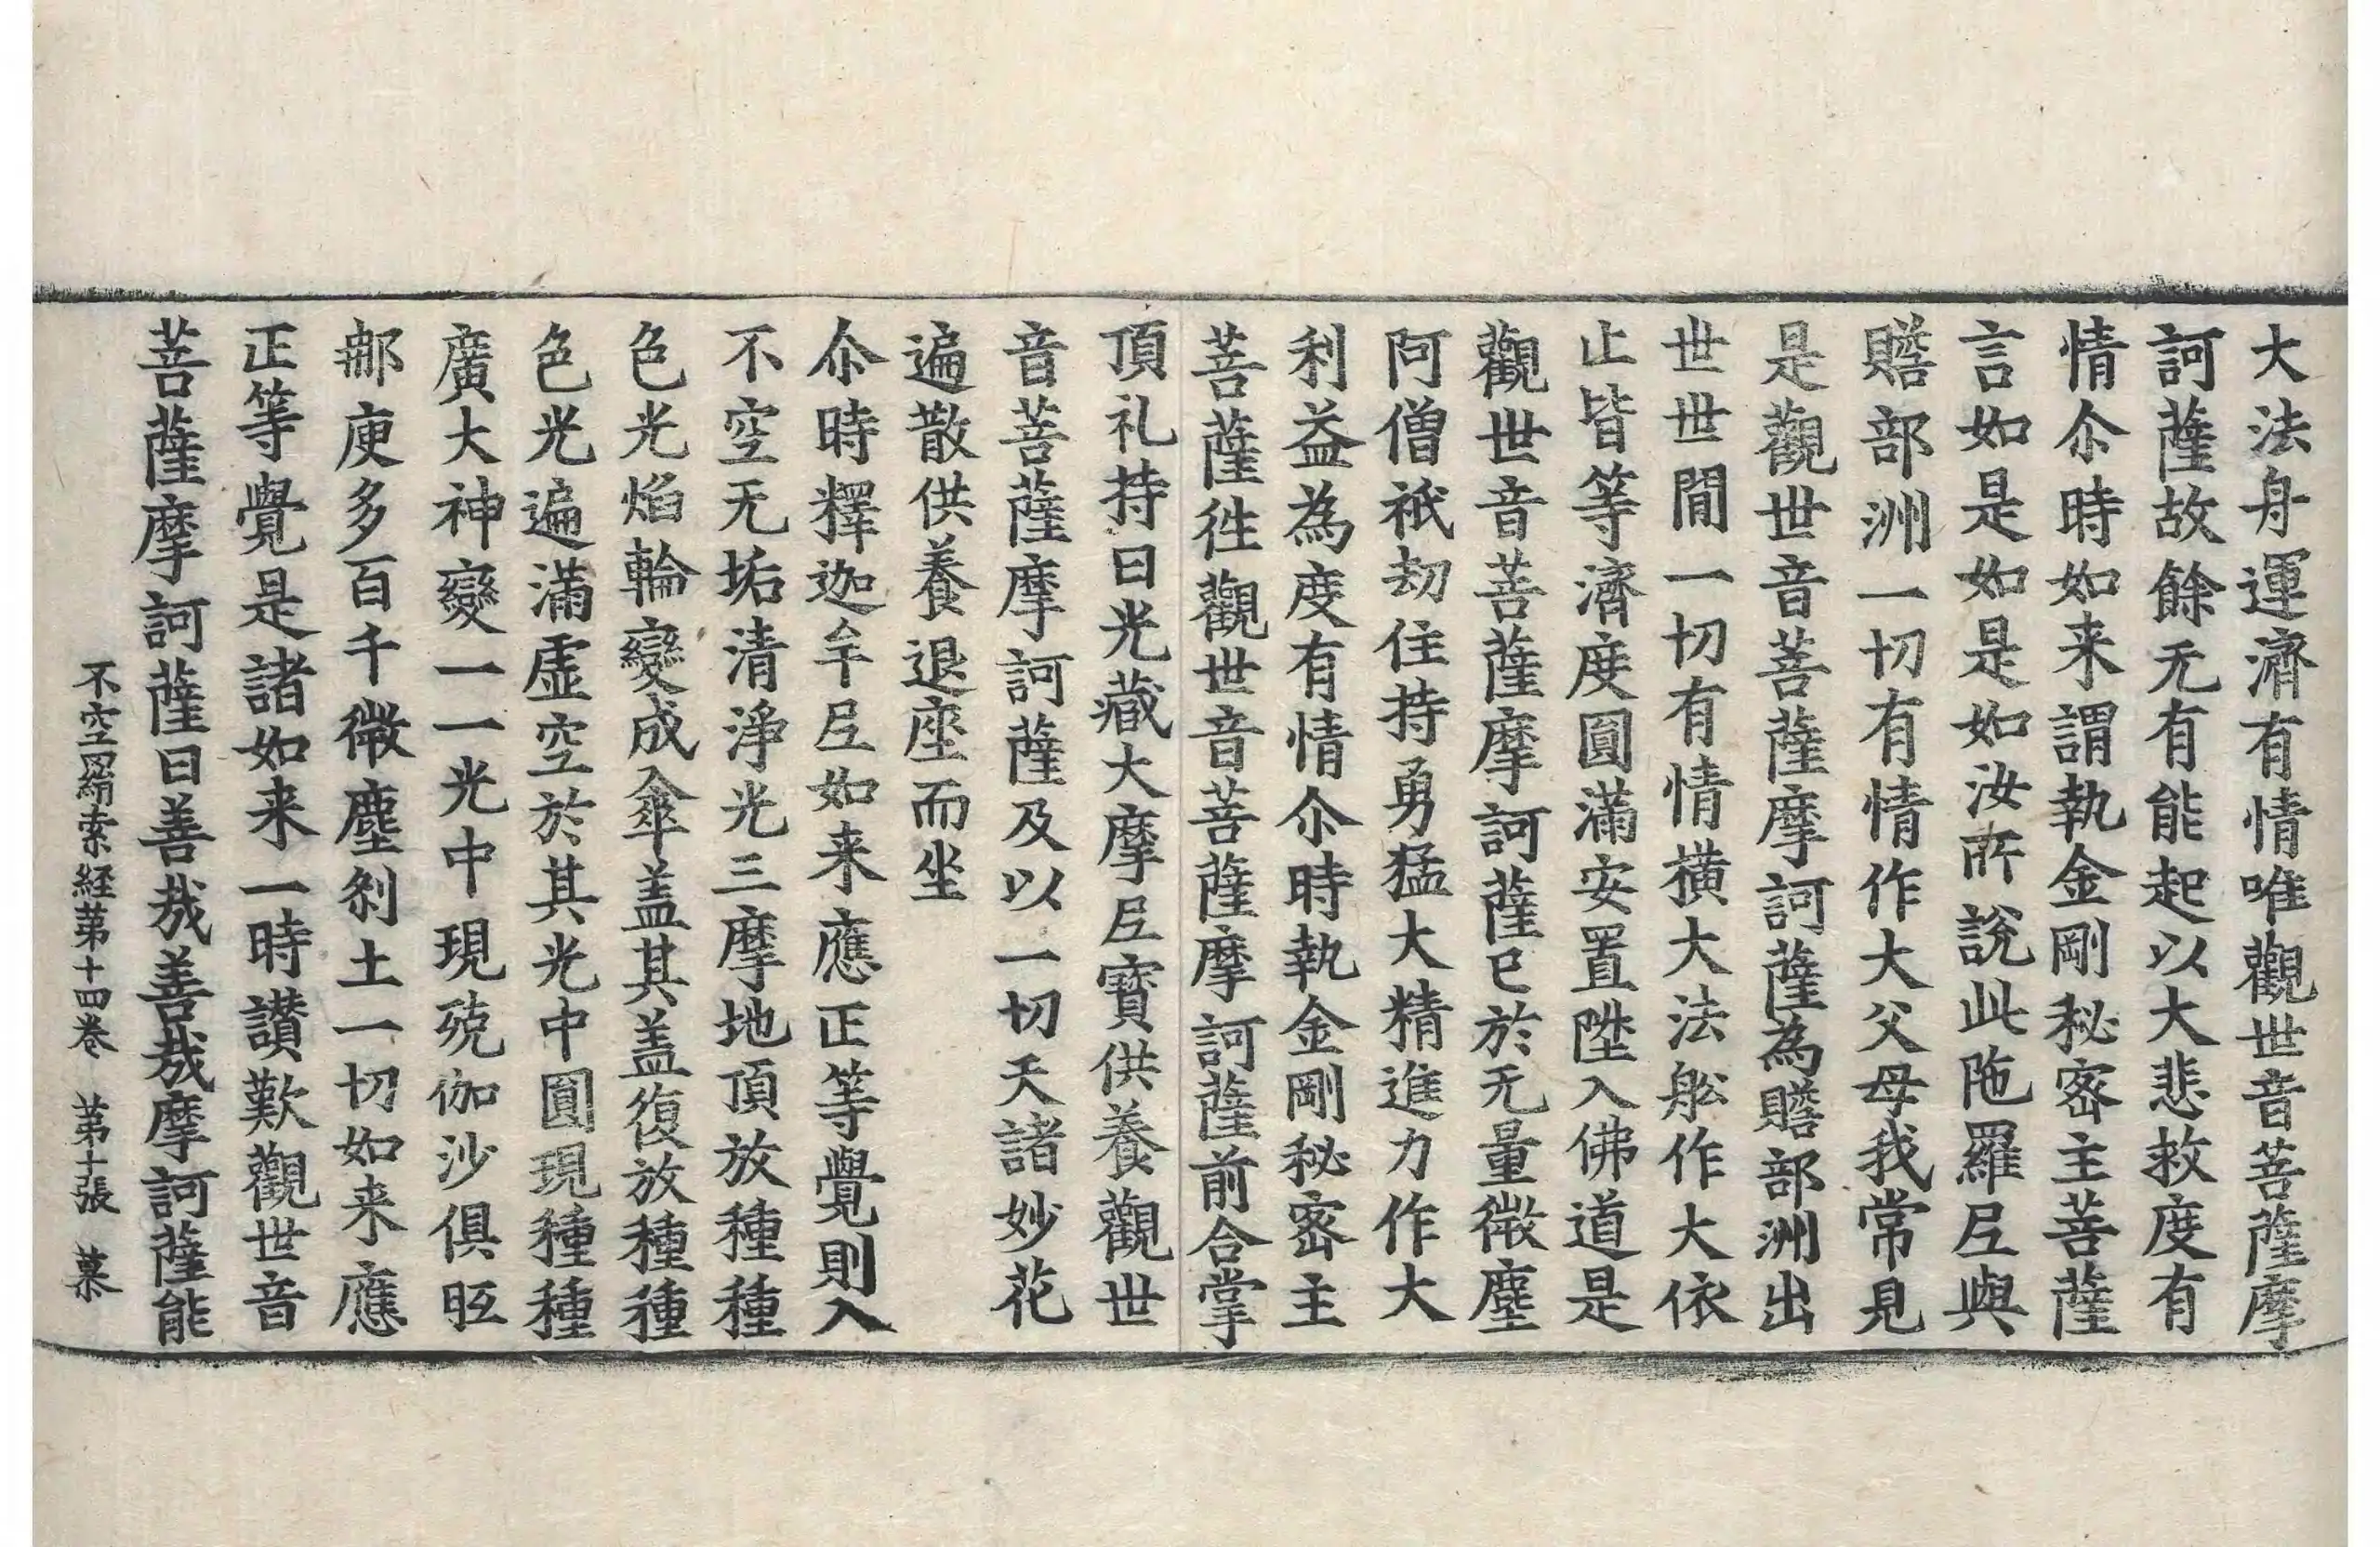 大法舟運濟有情唯觀世音菩薩摩
訶薩故餘无有能起以大悲救度有
情尒時如来謂執金剛秘密主菩薩
言如是如是如汝所說此陁羅𡰱與
贍部洲一切有情作大父母我常見
是觀世音菩薩摩訶薩為贍部洲出
世世間一切有情橫大法舩作大依
止皆等濟度圓滿安置陞入佛道是
觀世音菩薩摩訶薩已於无量微塵
阿僧祇劫住持勇猛大精進力作大
利益為度有情尒時執金剛秘密主
菩薩往觀世音菩薩摩訶薩前合掌
頂礼持日光藏大摩𡰱寶供養觀世
音菩薩摩訶薩及以一切天諸妙花
遍散供養退座而坐
尒時釋迦牟𡰱如来應正等覺則入
不空无垢清淨光三摩地頂放種種
色光焰輪變成傘盖其盖復放種種
色光遍滿虛空於其光中圓現種種
廣大神變一一光中現殑伽沙俱胝
𨚗庾多百千微塵剎土一切如来應
正等覺是諸如来一時讚歎觀世音
菩薩摩訶薩曰善㢤善㢤摩訶薩能
不空羂索経第十四卷 第十張 慕